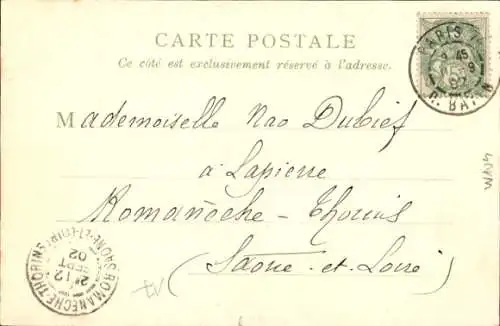 CARTE POSTALE
Ce côté est exclusivement réservé à l'adresse.
Mademoiselle Nao Dubief
à Lapierre
Romanèche-Thorins
Saône-et-Loire
PARIS
45
9
02
R. BALEN
ROMANECHE-THORINS
SAONE-ET-LOIRE
2E 12
SEPT
02